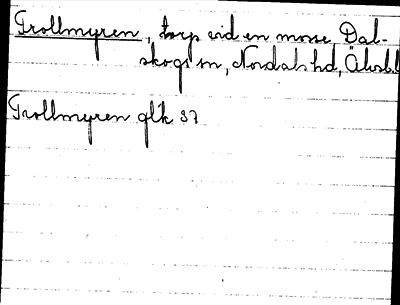 Trollmyren, torp vid en mosse, Dal-
skogs sn, Nordals hd, Älvsb.l
Trollmyren glk 37